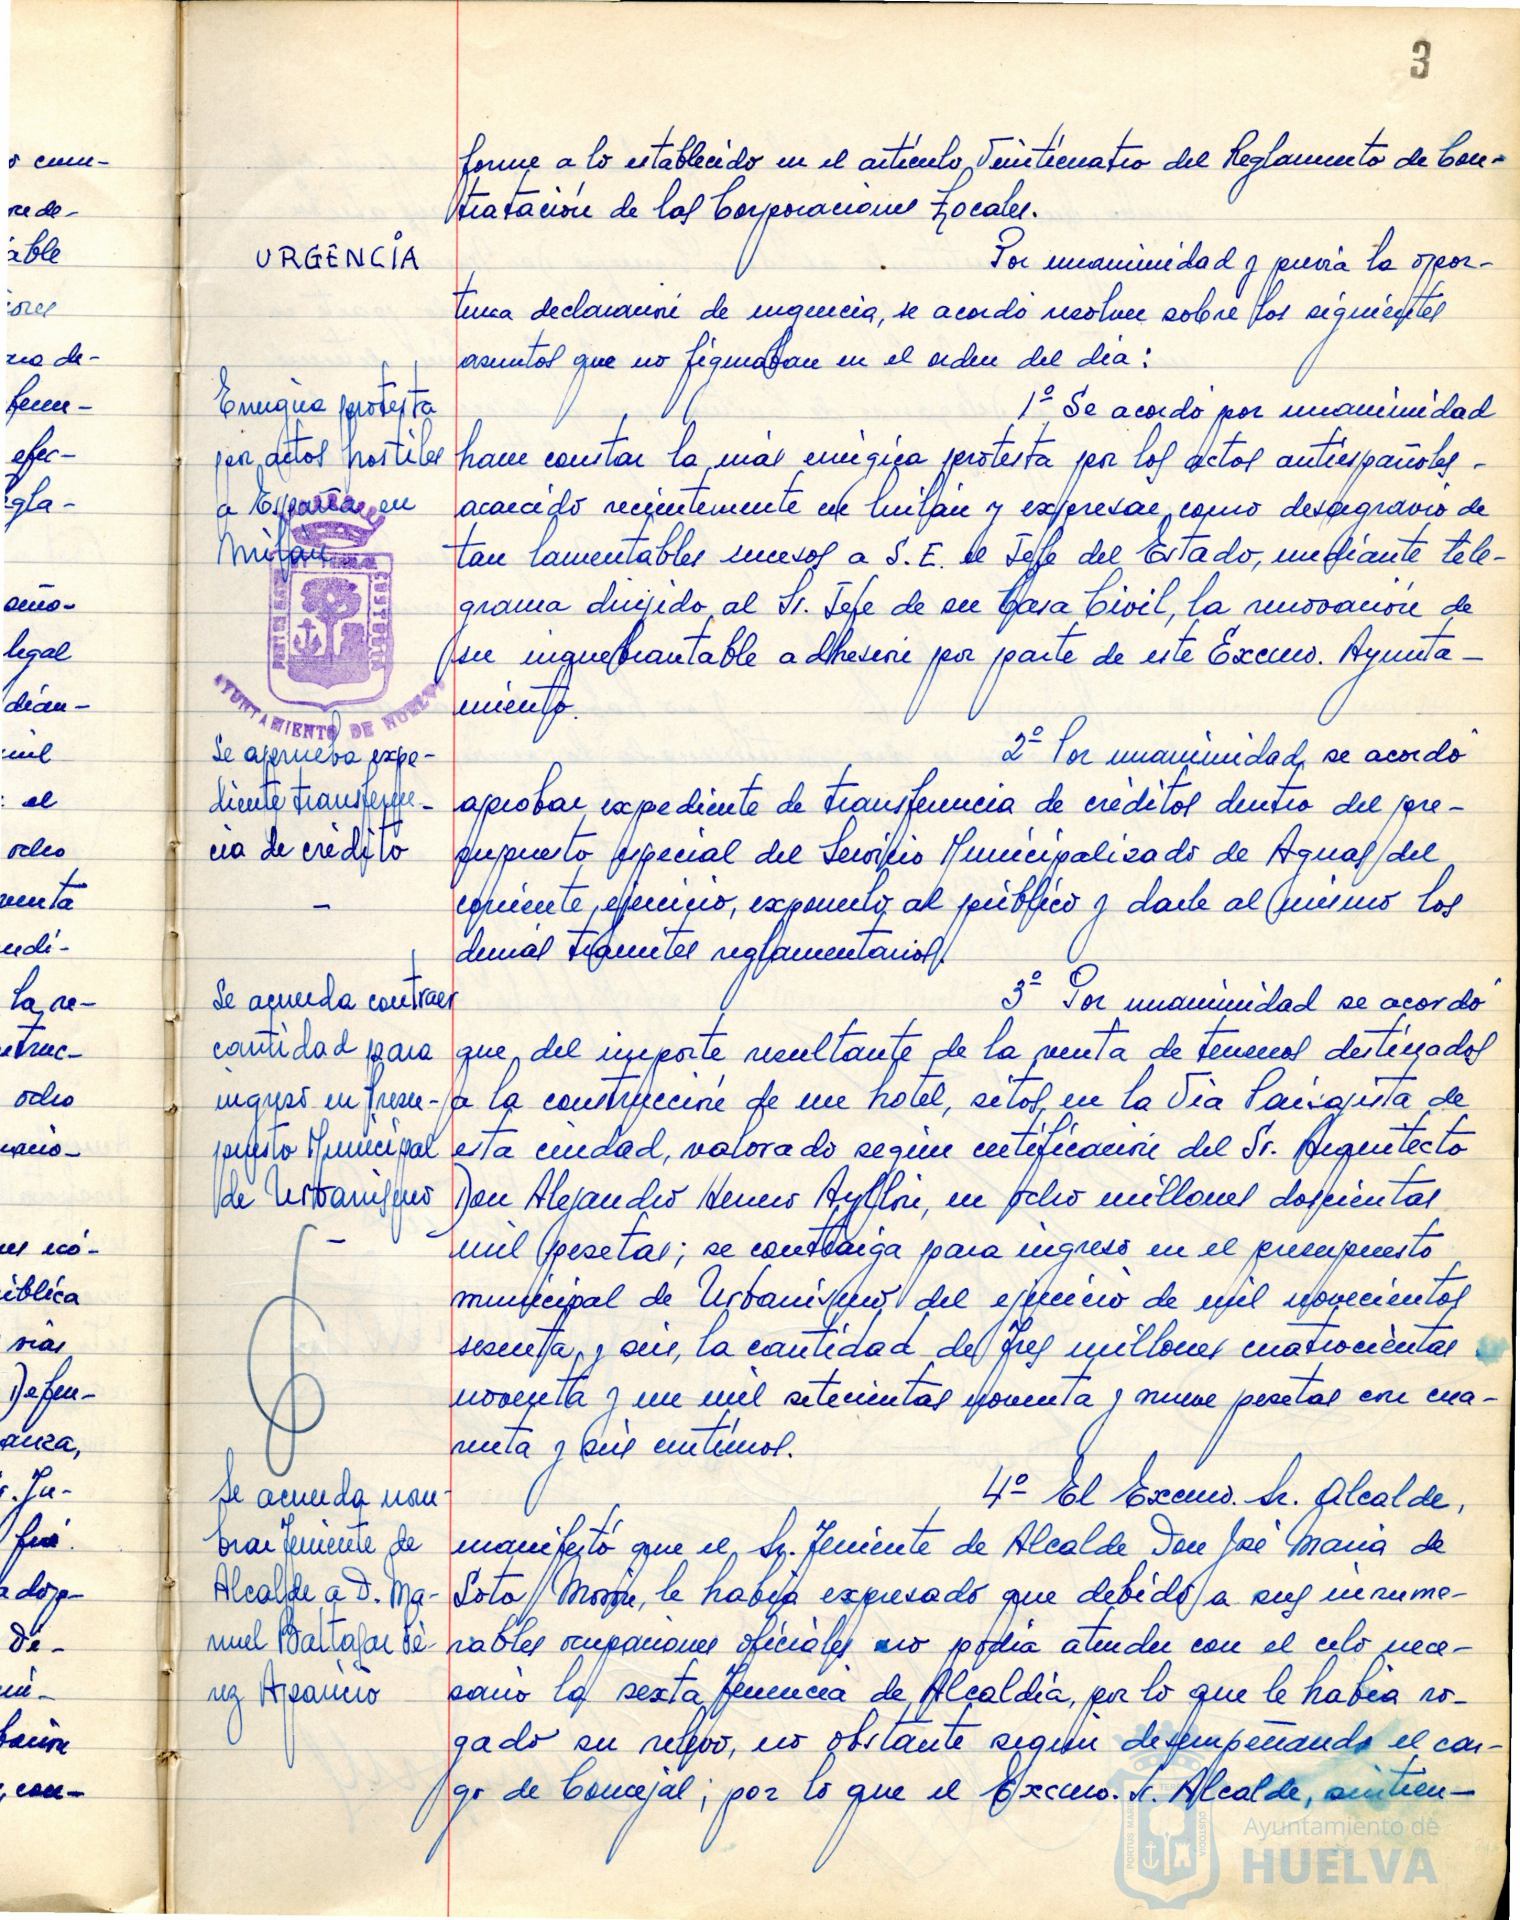 3
forme a lo establecido en el artículo Veinticuatro del Reglamento de Con-
tratación de las Corporaciones Locales.
URGENCIA
Por unanimidad y previa la opor-
tuna declaración de urgencia, se acordó resolver sobre los siguientes
asuntos que no figuraban en el orden del día:
Enérgica protesta
por actos hostiles
a España en
Milan
1º Se acordó por unanimidad
hacer constar la más enérgica protesta por los actos antiespañoles
acaecido recientemente en Milán y expresar, como desagravio de
tan lamentables sucesos a S.E. el Jefe del Estado, mediante tele-
grama dirigido al Sr. Jefe de su Casa Civil, la renovación de
su inquebrantable adhesión por parte de este Excmo. Ayunta-
miento.
AYUNTAMIENTO DE HUELVA
Se aprueba expe-
diente transferen-
cia de crédito
2º Por unanimidad se acordó
aprobar expediente de transferencia de créditos dentro del pre-
supuesto especial del Servicio Municipalizado de Aguas del
corriente ejercicio, exponerlo al público y darle al mismo los
demás trámites reglamentarios.
Se acuerda contraer
cantidad para
ingreso en Presu-
puesto Municipal
de Urbanismo
3º Por unanimidad se acordó
que del importe resultante de la venta de terrenos destinados
a la construcción de un hotel, sitos en la Vía Paisajista de
esta ciudad, valorado según certificación del Sr. Arquitecto
Don Alejandro Herrero Ayllón, en ocho millones doscientas
mil pesetas; se contraiga para ingreso en el presupuesto
municipal de Urbanismo del ejercicio de mil novecientos
sesenta y seis, la cantidad de tres millones cuatrocientas
noventa y un mil setecientas noventa y nueve pesetas con cua-
renta y seis centimos.
Se acuerda nom-
brar Teniente de
Alcalde a D. Ma-
nuel Baltasar Pé-
rez Aparicio
4º El Excmo. Sr. Alcalde,
manifestó que el Sr. Teniente de Alcalde Don José Maria de
Soto Morón, le había expresado que debido a sus innume-
rables ocupaciones oficiales no podía atender con el celo nece-
sario la sexta Tenencia de Alcaldía, por lo que le había ro-
gado su relevo, no obstante seguir desempeñando el car-
go de Concejal; por lo que el Excmo. Sr. Alcalde, sintien-
Ayuntamiento de
HUELVA